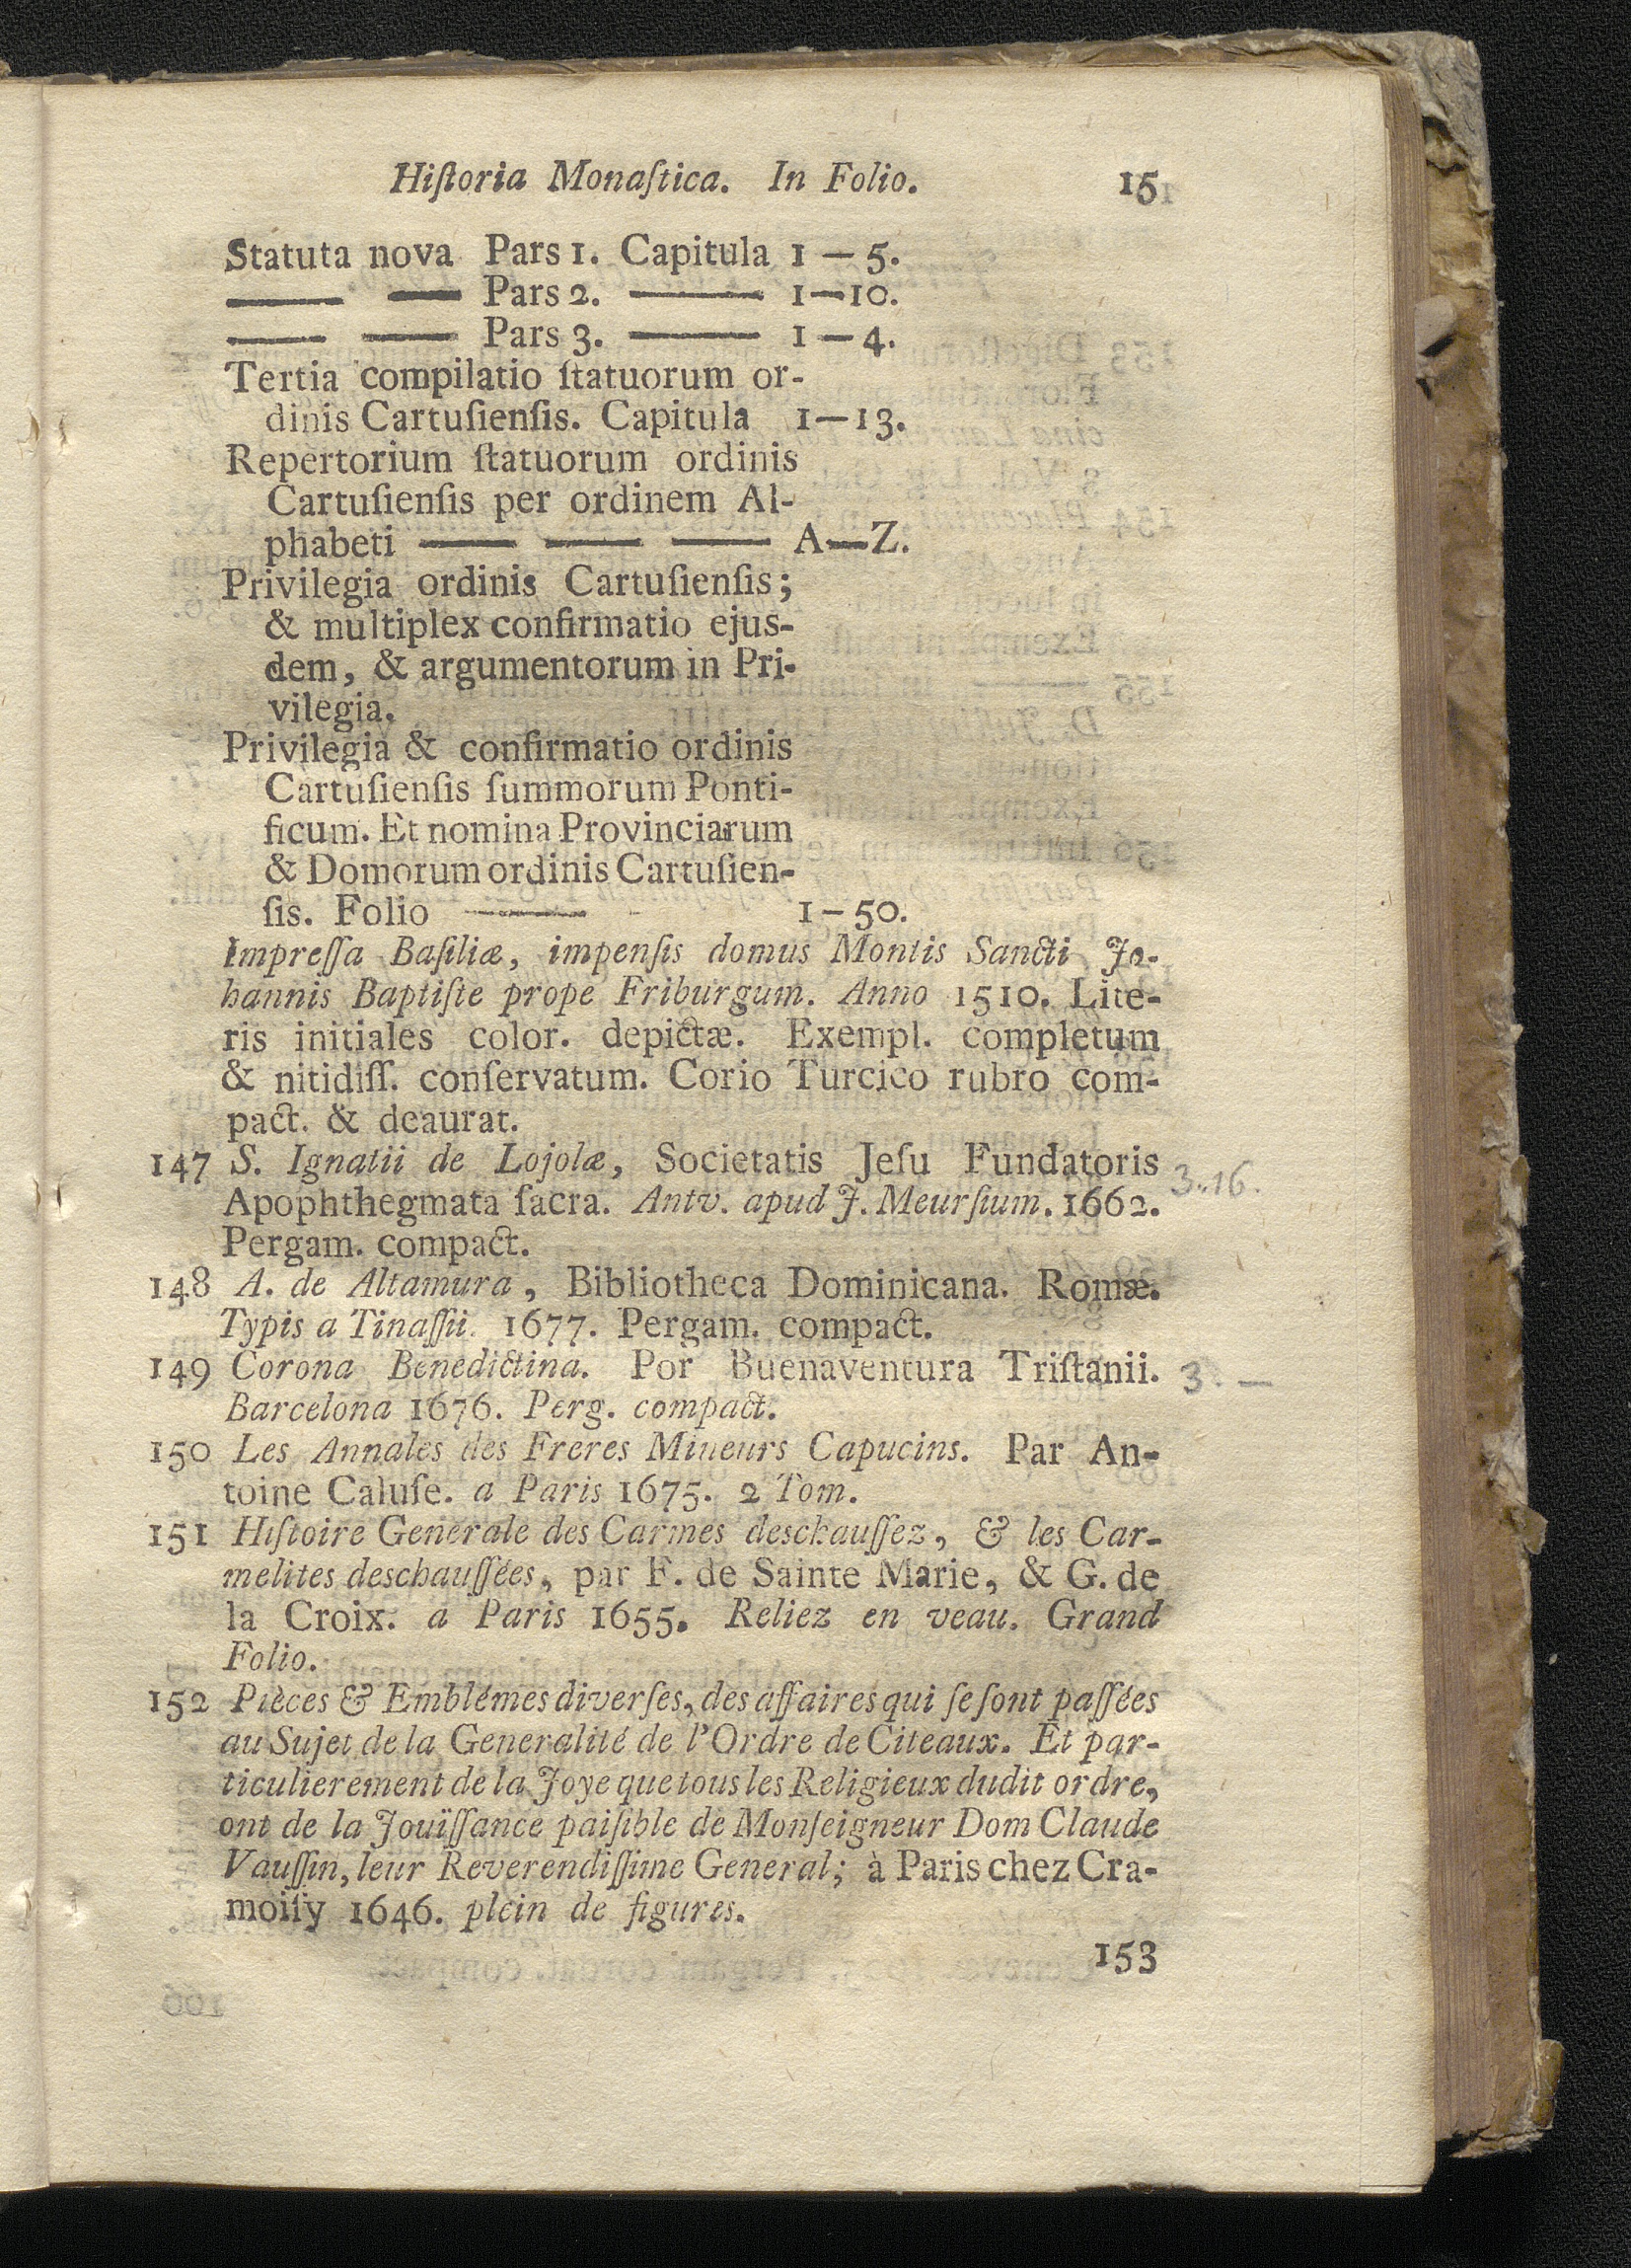 Hiſtoria Monaſtica. In Folio. 15
Statuta nova Pars 1. Capitula 1 — 5.
—— —— Pars 2. —— 1—10.
—— —— Pars 3. —— 1 — 4.
Tertia compilatio ſtatuorum or-
dinis Cartuſienſis. Capitula 1—13.
Repertorium ſtatuorum ordinis
Cartuſienſis per ordinem Al-
phabeti —— —— —— A—Z.
Privilegia ordinis Cartuſienſis;
& multiplex confirmatio ejus-
dem, & argumentorum in Pri-
vilegia.
Privilegia & confirmatio ordinis
Cartuſienſis ſummorum Ponti-
ficum. Et nomina Provinciarum
& Domorum ordinis Cartuſien-
ſis. Folio —— 1 – 50.
Impreſſa Baſiliæ, impenſis domus Montis Sancti Jo-
hannis Baptiſte prope Friburgum. Anno 1510. Lite-
ris initiales color. depictæ. Exempl. completum
& nitidiſſ. conſervatum. Corio Turcico rubro com-
pact. & deaurat.
147 S. Ignatii de Lojolæ, Societatis Jeſu Fundatoris 3.-16.
Apophthegmata ſacra. Antv. apud J. Meurſium. 1662.
Pergam. compact.
148 A. de Altamura, Bibliotheca Dominicana. Romæ.
Typis a Tinaſſii. 1677. Pergam. compact.
149 Corona Benedictina. Por Buenaventura Triſtanii. 3. —
Barcelona 1676. Perg. compact.
150 Les Annales des Freres Mineurs Capucins. Par An-
toine Caluſe. a Paris 1675. 2 Tom.
151 Hiſtoire Generale des Carmes deschauſſez, & les Car-
melites deschauſſées, par F. de Sainte Marie, & G. de
la Croix. a Paris 1655. Reliez en veau. Grand
Folio.
152 Pièces & Emblémes diverſes, des affaires qui ſe ſont paſſées
au Sujet de la Generalité de l'Ordre de Citeaux. Et par-
ticulierement de la Joye que tous les Religieux dudit ordre,
ont de la Jouïſſance paiſible de Monſeigneur Dom Claude
Vauſſin, leur Reverendiſſime General; à Paris chez Cra-
moiſy 1646. plein de figures.
153